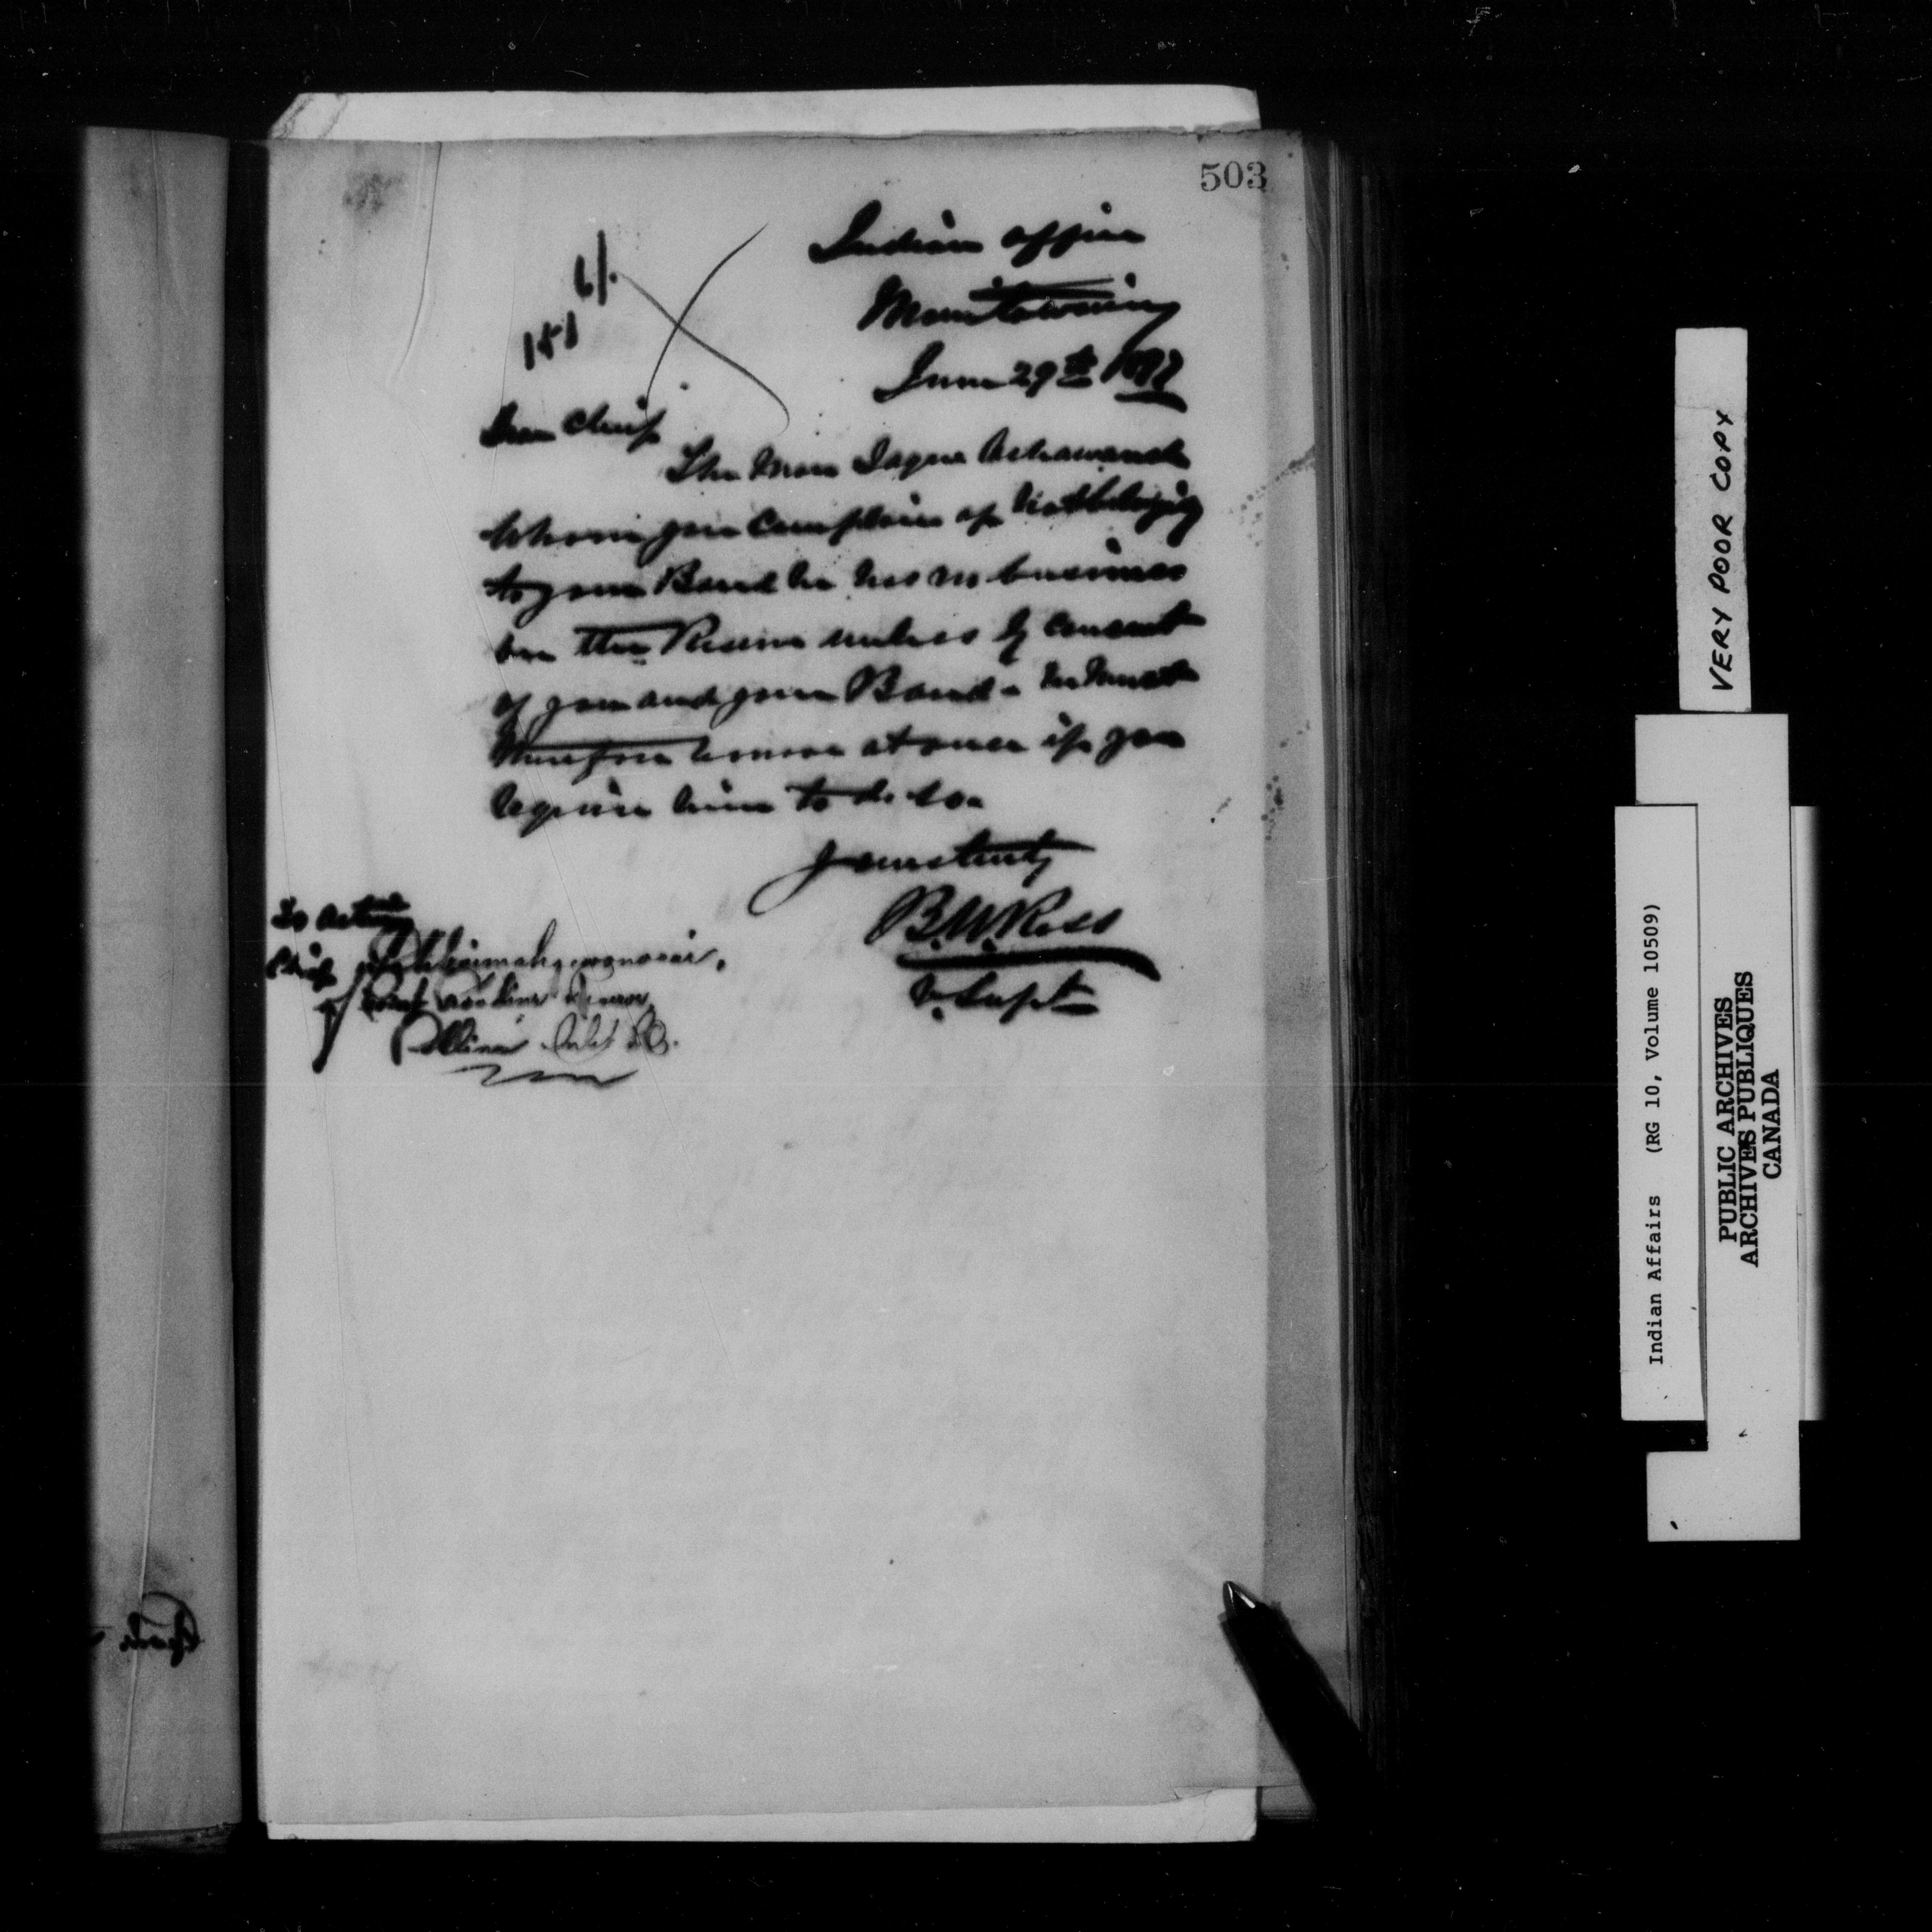 503
Indian office
Manitowaning
June 29th 1897
61.
181
Dear Chief
The man
whom you complain of not belonging
to your Band he has no business
on the Reserve unless by consent
of you and your Band. he must
therefore remove at once if you
require him to do so.
Yours truly
B.W. Ross
V. Supt
To acting
Chief
of
VERY POOR COPY
Indian Affairs (RG 10, Volume 10509)
PUBLIC ARCHIVES
ARCHIVES PUBLIQUES
CANADA